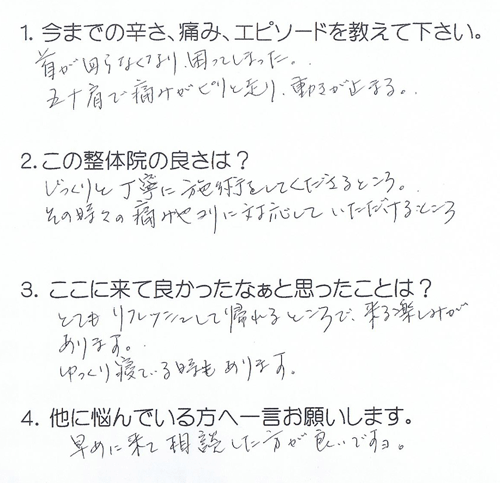 1. 今までの辛さ、痛み、エピソードを教えて下さい。
首が回らなくなり、困ってしまった。
五十肩で痛みがビリと走り、動きが止まる。
2.この整体院の良さは？
じっくりと丁寧に施術をしてくださるところ。
その時々の痛みやコリに対応していただけるところ
3. ここに来て良かったなぁと思ったことは？
とてもリフレッシュして帰れるところで、来る楽しみが
あります。
ゆっくり寝ている時もあります。
4. 他に悩んでいる方へ一言お願いします。
早めに来て相談した方が良いですョ。